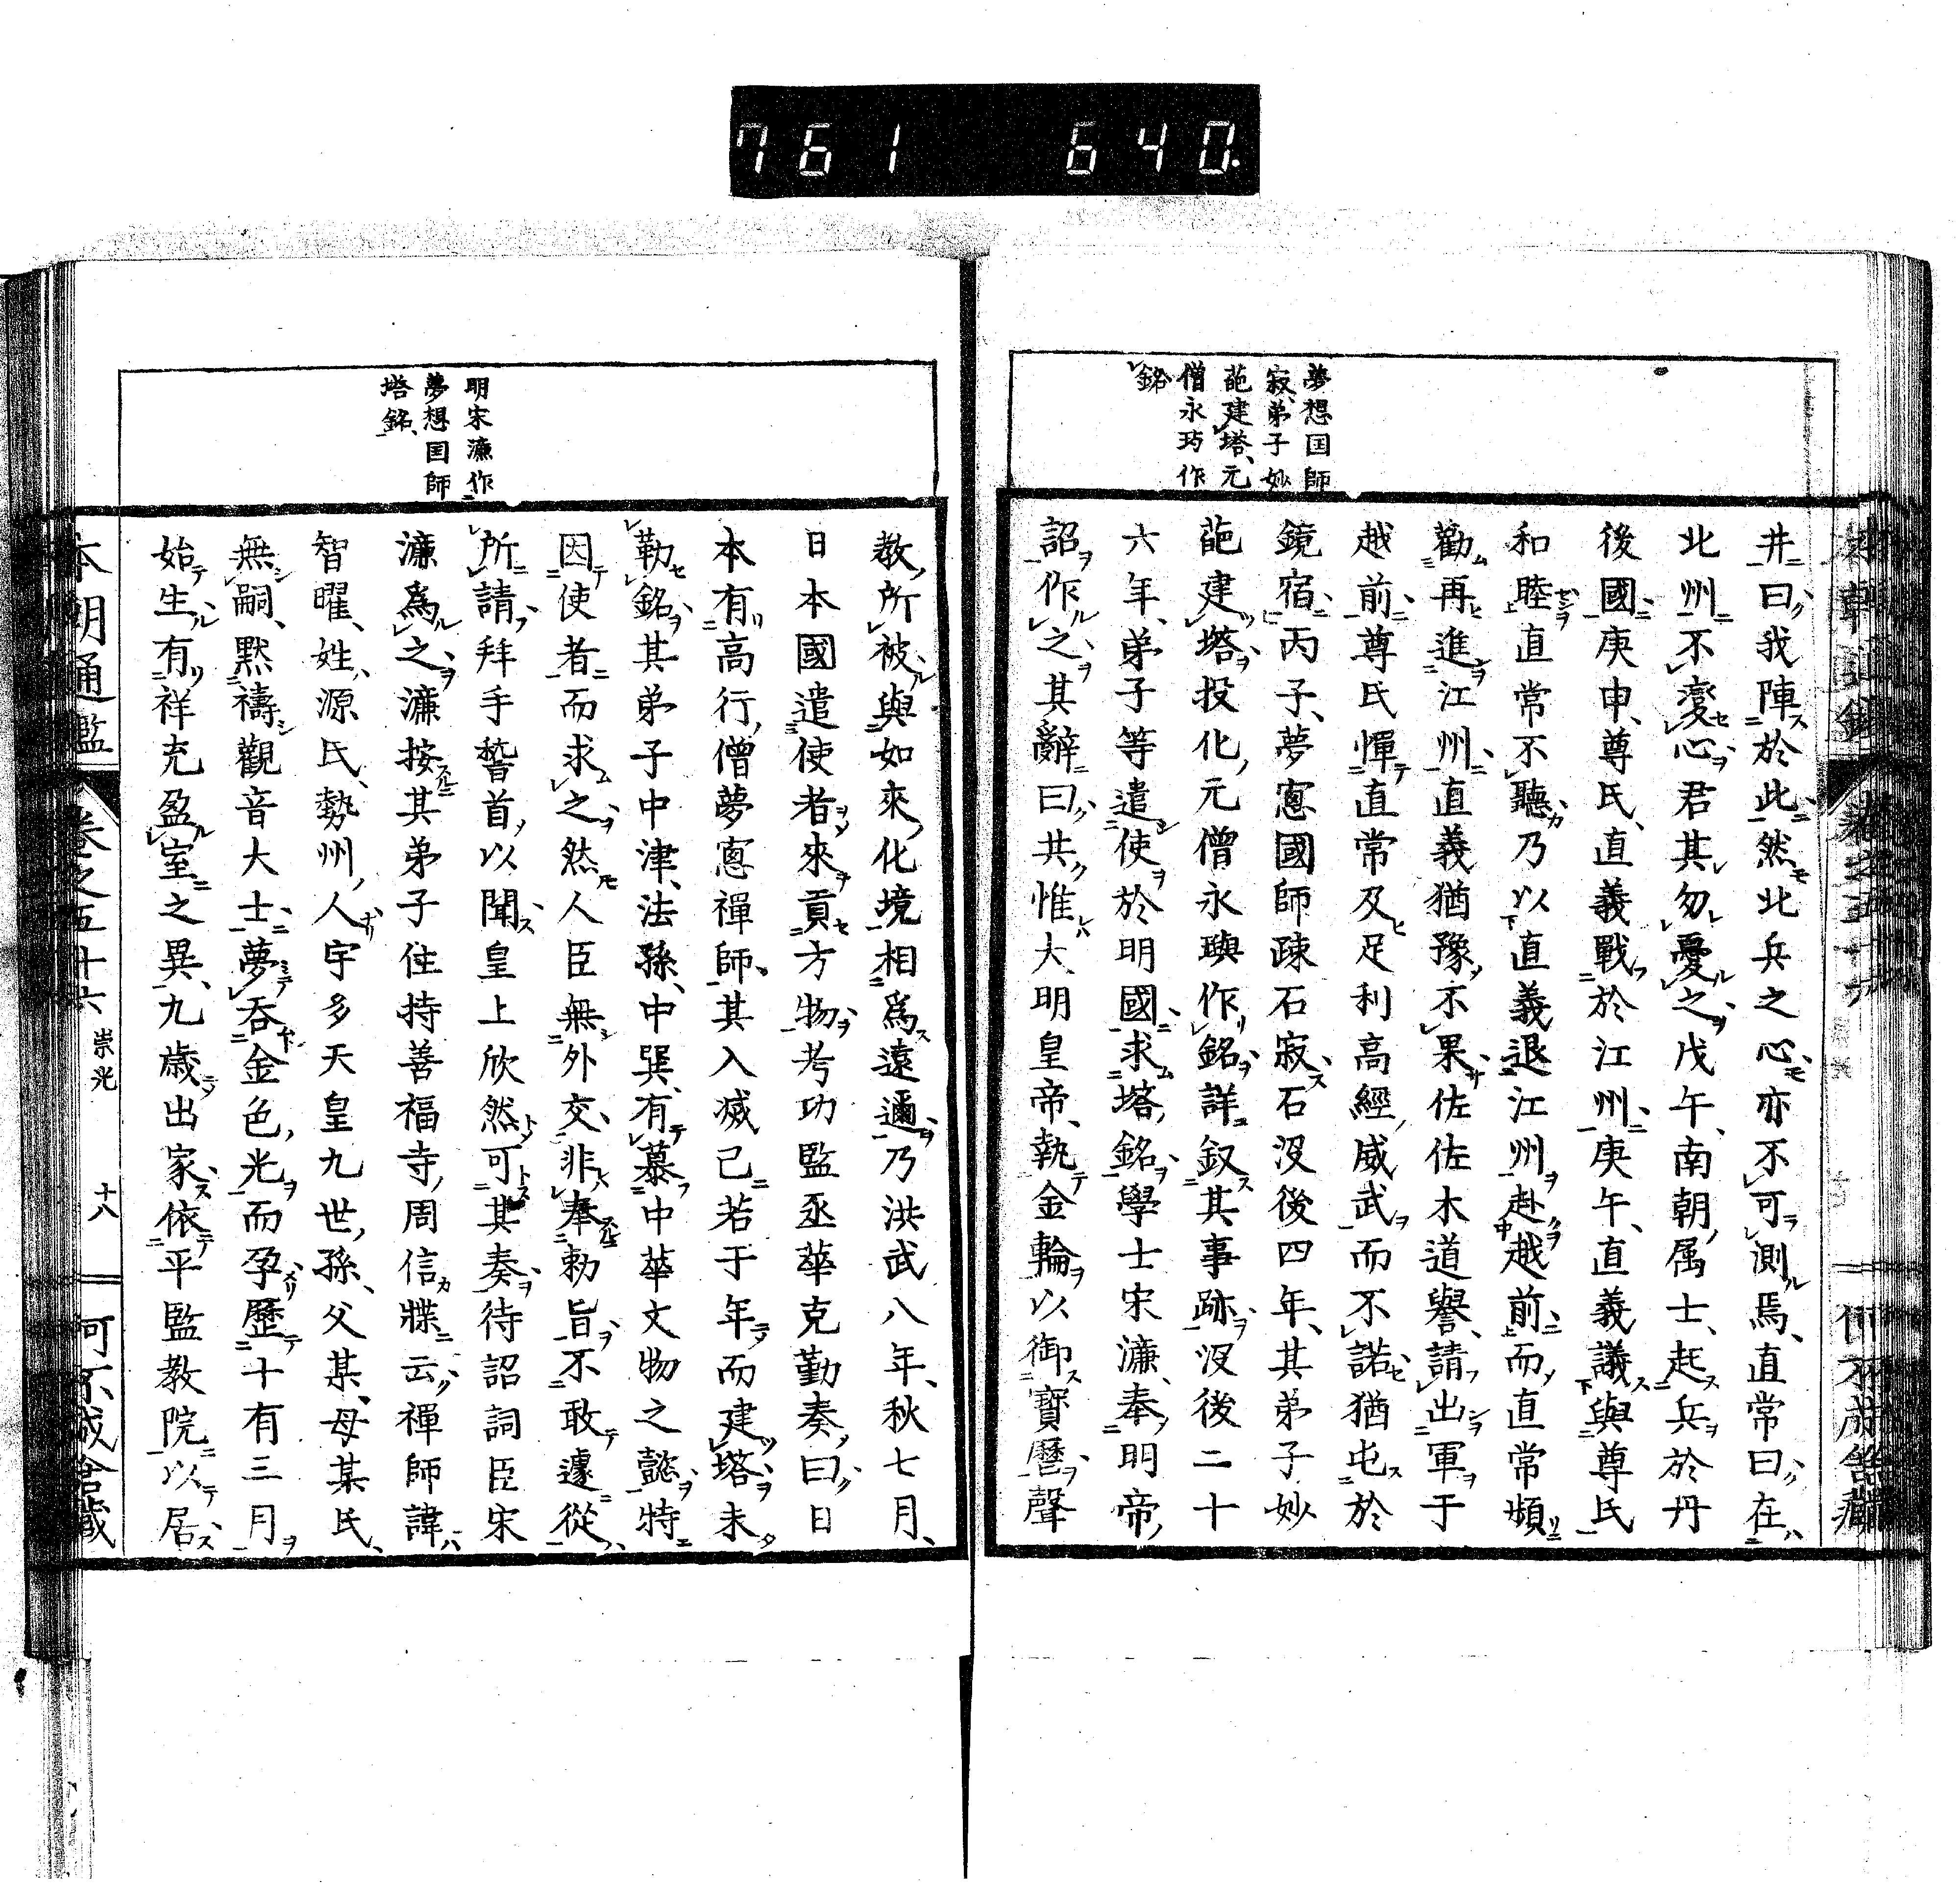 761 640.
夢想国師
寂、弟子妙
葩建塔、元
僧永璵作
銘
井曰、我陣於此、然北兵之心、亦不可測焉、直常曰、在
北州不変心、君其勿憂之、戊午、南朝属士、起兵於丹
後國、庚申、尊氏、直義戰於江州、庚午、直義議與尊氏
和睦、直常不聽、乃以直義退江州、赴越前、而直常頻
勸再進江州、直義猶豫、不果、佐佐木道譽、請出軍于
越前、尊氏憚直常及足利高經威武、而不諾、猶屯於
鏡宿、丙子、夢窻國師疎石寂、石没後四年、其弟子妙
葩建塔、投化元僧永璵作銘、詳釵其事跡、没後二十
六年、弟子等遣使於明國、求塔銘、學士宋濂、奉明帝
詔作之、其辭曰、共惟大明皇帝、執金輪以御寶曆、聲
明宋濂作
夢想国師
塔銘
教所被、與如來化境相爲遠邇、乃洪武八年、秋七月、
日本國遣使者來貢方物、考功監丞華克勤奏曰、日
本有高行僧夢窻禪師、其入滅已若干年、而建塔未
勒銘、其弟子中津、法孫中巽、有慕中華文物之懿、特
因使者而求之、然人臣無外交、非奉勅旨、不敢遽從
所請、拜手䭫首以聞、皇上欣然可其奏、待詔詞臣宋
濂爲之、濂按其弟子住持善福寺周信牒云、禪師諱
智曜、姓源氏、勢州人、宇多天皇九世孫、父某、母某氏、
無嗣、黙禱觀音大士、夢吞金色光而孕、歷十有三月
始生、有祥光盈室之異、九歲出家、依平監教院以居
本朝通鑑 卷之五十六 崇光 十八